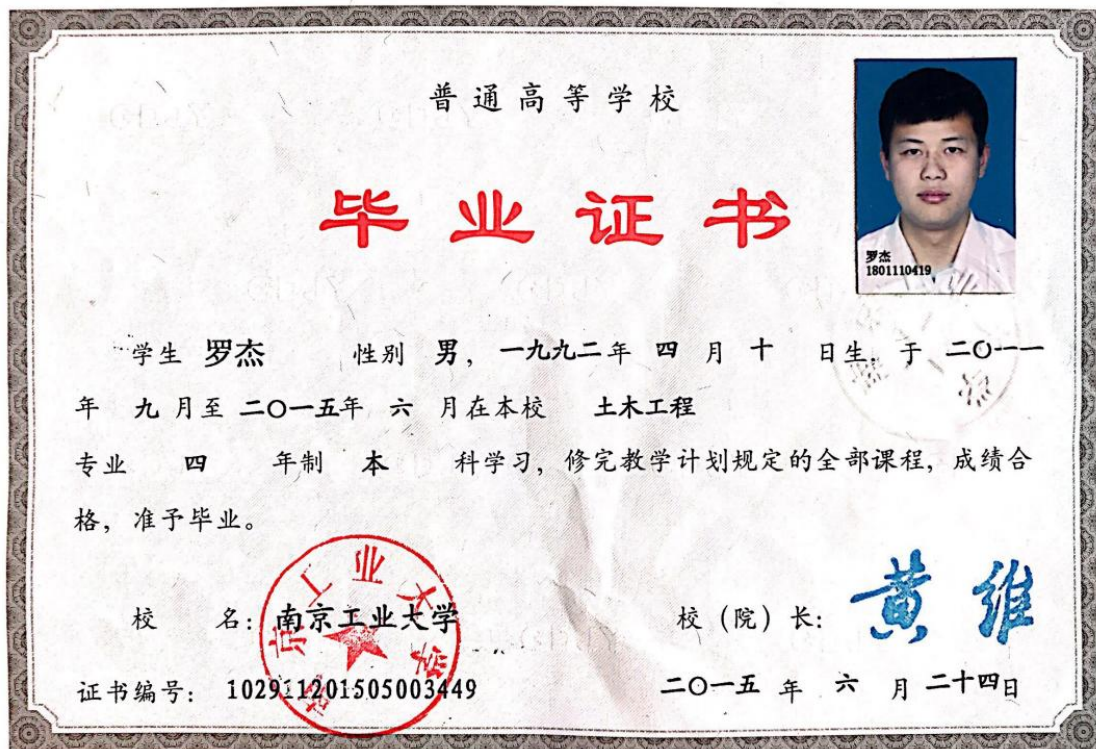 普通高等学校
毕业证书
罗杰
1801110419
学生 罗杰 性别 男, 一九九二年 四 月 十 日生, 于 二〇一一
年 九 月至 二〇一五年 六 月在本校 土木工程
专业 四 年制 本 科学习, 修完教学计划规定的全部课程, 成绩合
格, 准予毕业。
校 名: 南京工业大学
南京工业大学
校 (院) 长: 黄维
证书编号: 102911201505003449
二〇一五 年 六 月 二十四日